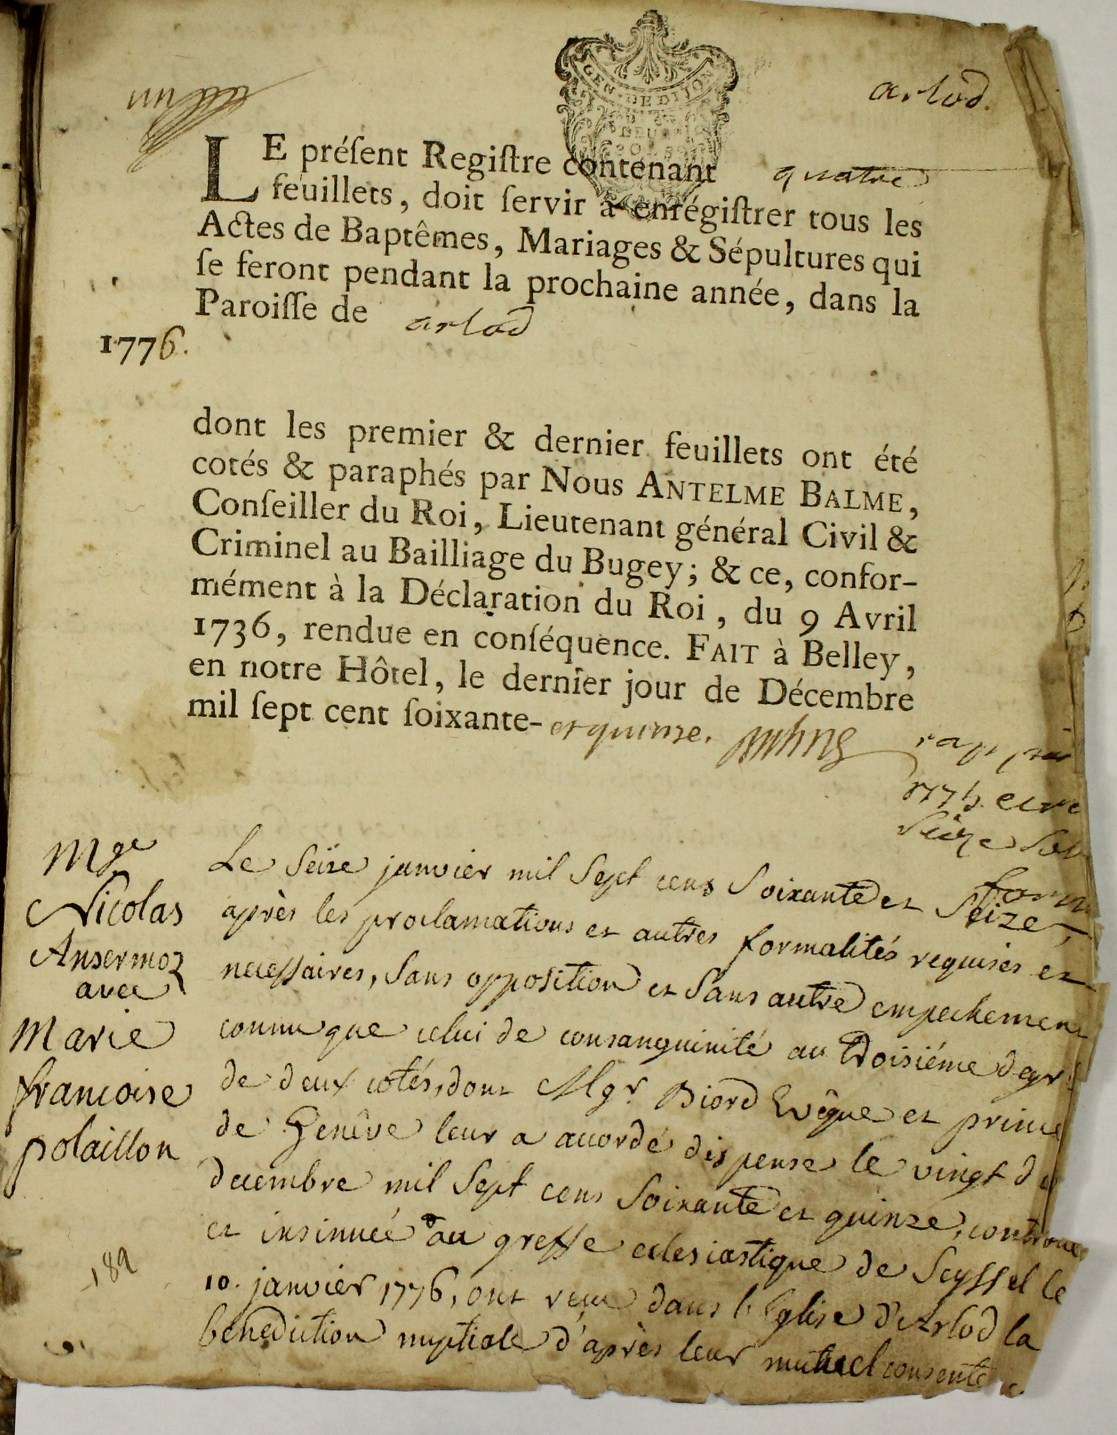 arlod.
GEN. DE DIJON
LE préſent Regiſtre contenant quatre
feuillets, doit ſervir à enrégiſtrer tous les
Actes de Baptêmes, Mariages & Sépultures qui
ſe feront pendant la prochaine année, dans la
Paroiſſe de arlod
1776.
dont les premier & dernier feuillets ont été
cotés & paraphés par Nous ANTELME BALME,
Conſeiller du Roi, Lieutenant général Civil &
Criminel au Bailliage du Bugey; & ce, confor-
mément à la Déclaration du Roi, du 9 Avril
1736, rendue en conſéquence. FAIT à Belley,
en notre Hôtel, le dernier jour de Décembre
mil ſept cent ſoixante- et quinze.
Seize
Mge
Nicolas
Ansermoz
avec
Marie
francoise
polaillon
189
Le Seize janvier mil Sept cens Soixante et Seize,
après les proclamations et autres formalités requises et
necessaires, Sans opposition et Sans autre empechemen
connu que celui de consanguinité au troisiéme degr
de deux cotés, dont Mgr Biord Evêque et prince
de Genêve leur a accordé dispense le vingt de
decembre mil Sept cens Soixante et quinze, controu
et insinuée au greffe eclesiastique de Seyssel le
10. janvier 1776, ont recu dans l'Eglise d'Arlod la
benediction nuptiale d'après leur mutuel consente